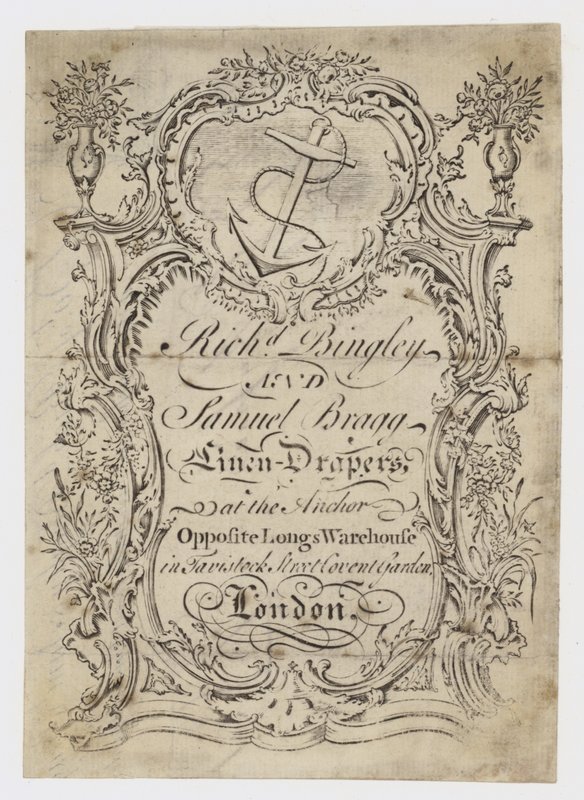 Richd. Bingley
AND
Samuel Bragg
Linen-Drapers,
at the Anchor
Opposite Longs Warehouse
in Tavistock Street Covent Garden,
London.